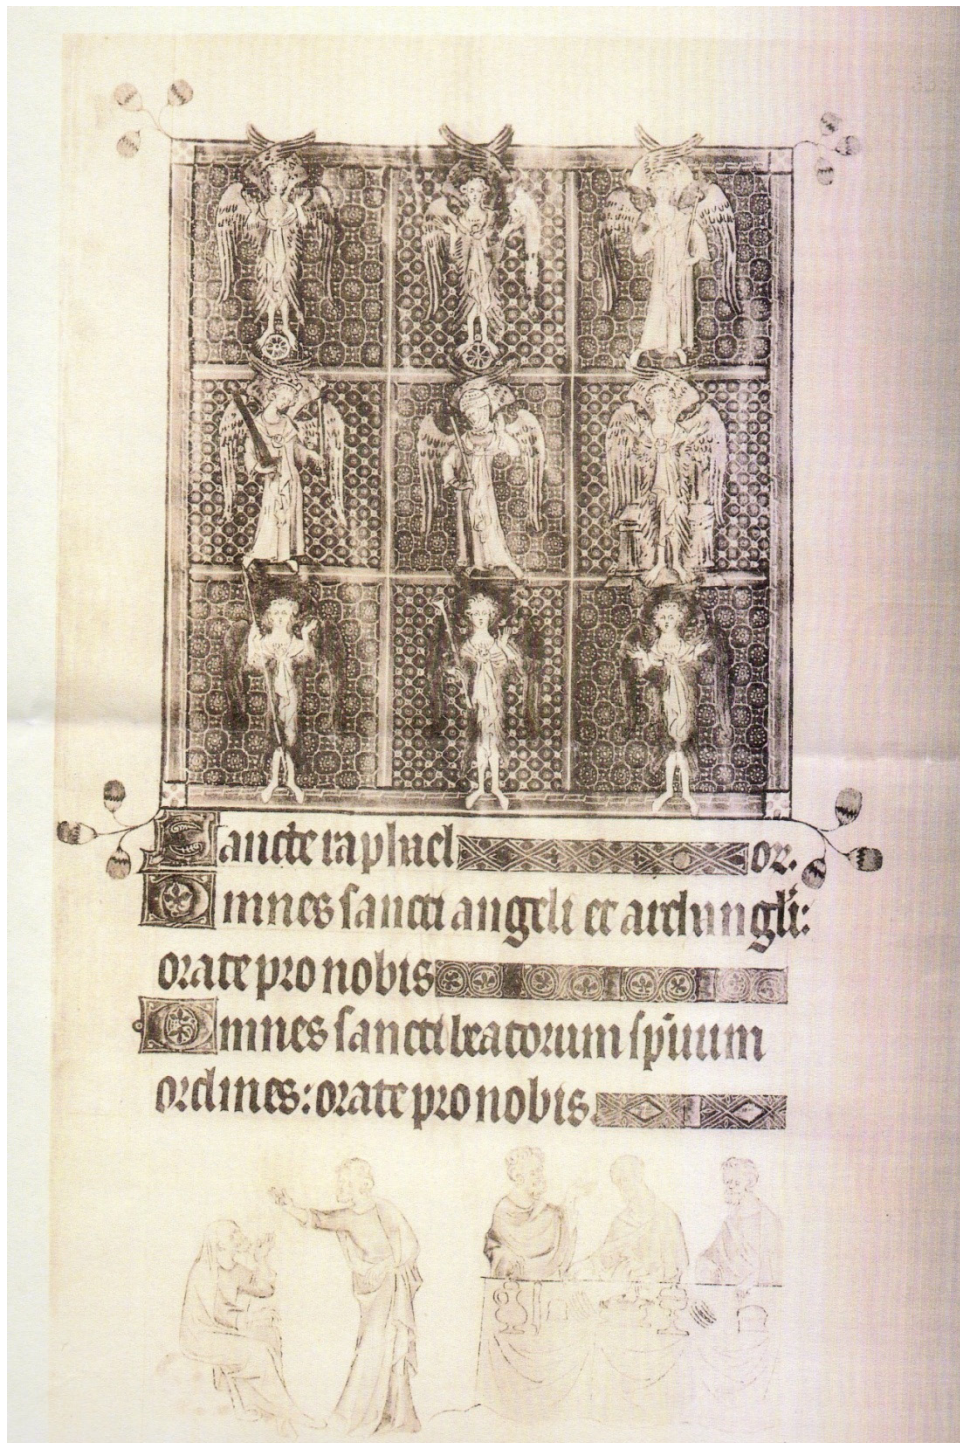 Sancte raphael or.
Omnes sancti angeli et archangli:
orate pro nobis
Omnes sancti beatorum spūum
ordines: orate pro nobis.